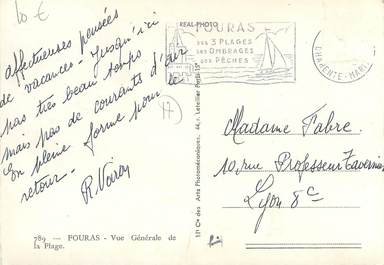 10 €
affectueuses pensées
de vacances - Jusqu'ici
pas très beau temps
mais pas de courants d'air
En pleine forme pour le
retour -
R. Voiron
(17)
REAL-PHOTO
FOURAS
SES 3 PLAGES
SES OMBRAGES
SES PÊCHES
CHARENTE-MARI
Madame Fabre.
10, rue Professeur Tavernier
Lyon 8e
Sté Cie des Arts Photomécaniques, 44, r. Letellier Paris
789 — FOURAS - Vue Générale de
la Plage.